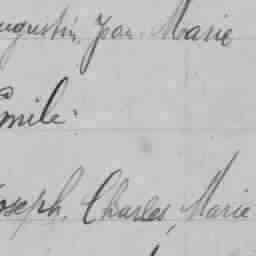 Augustin, Jean Marie
Emile.
Joseph, Charles, Marie